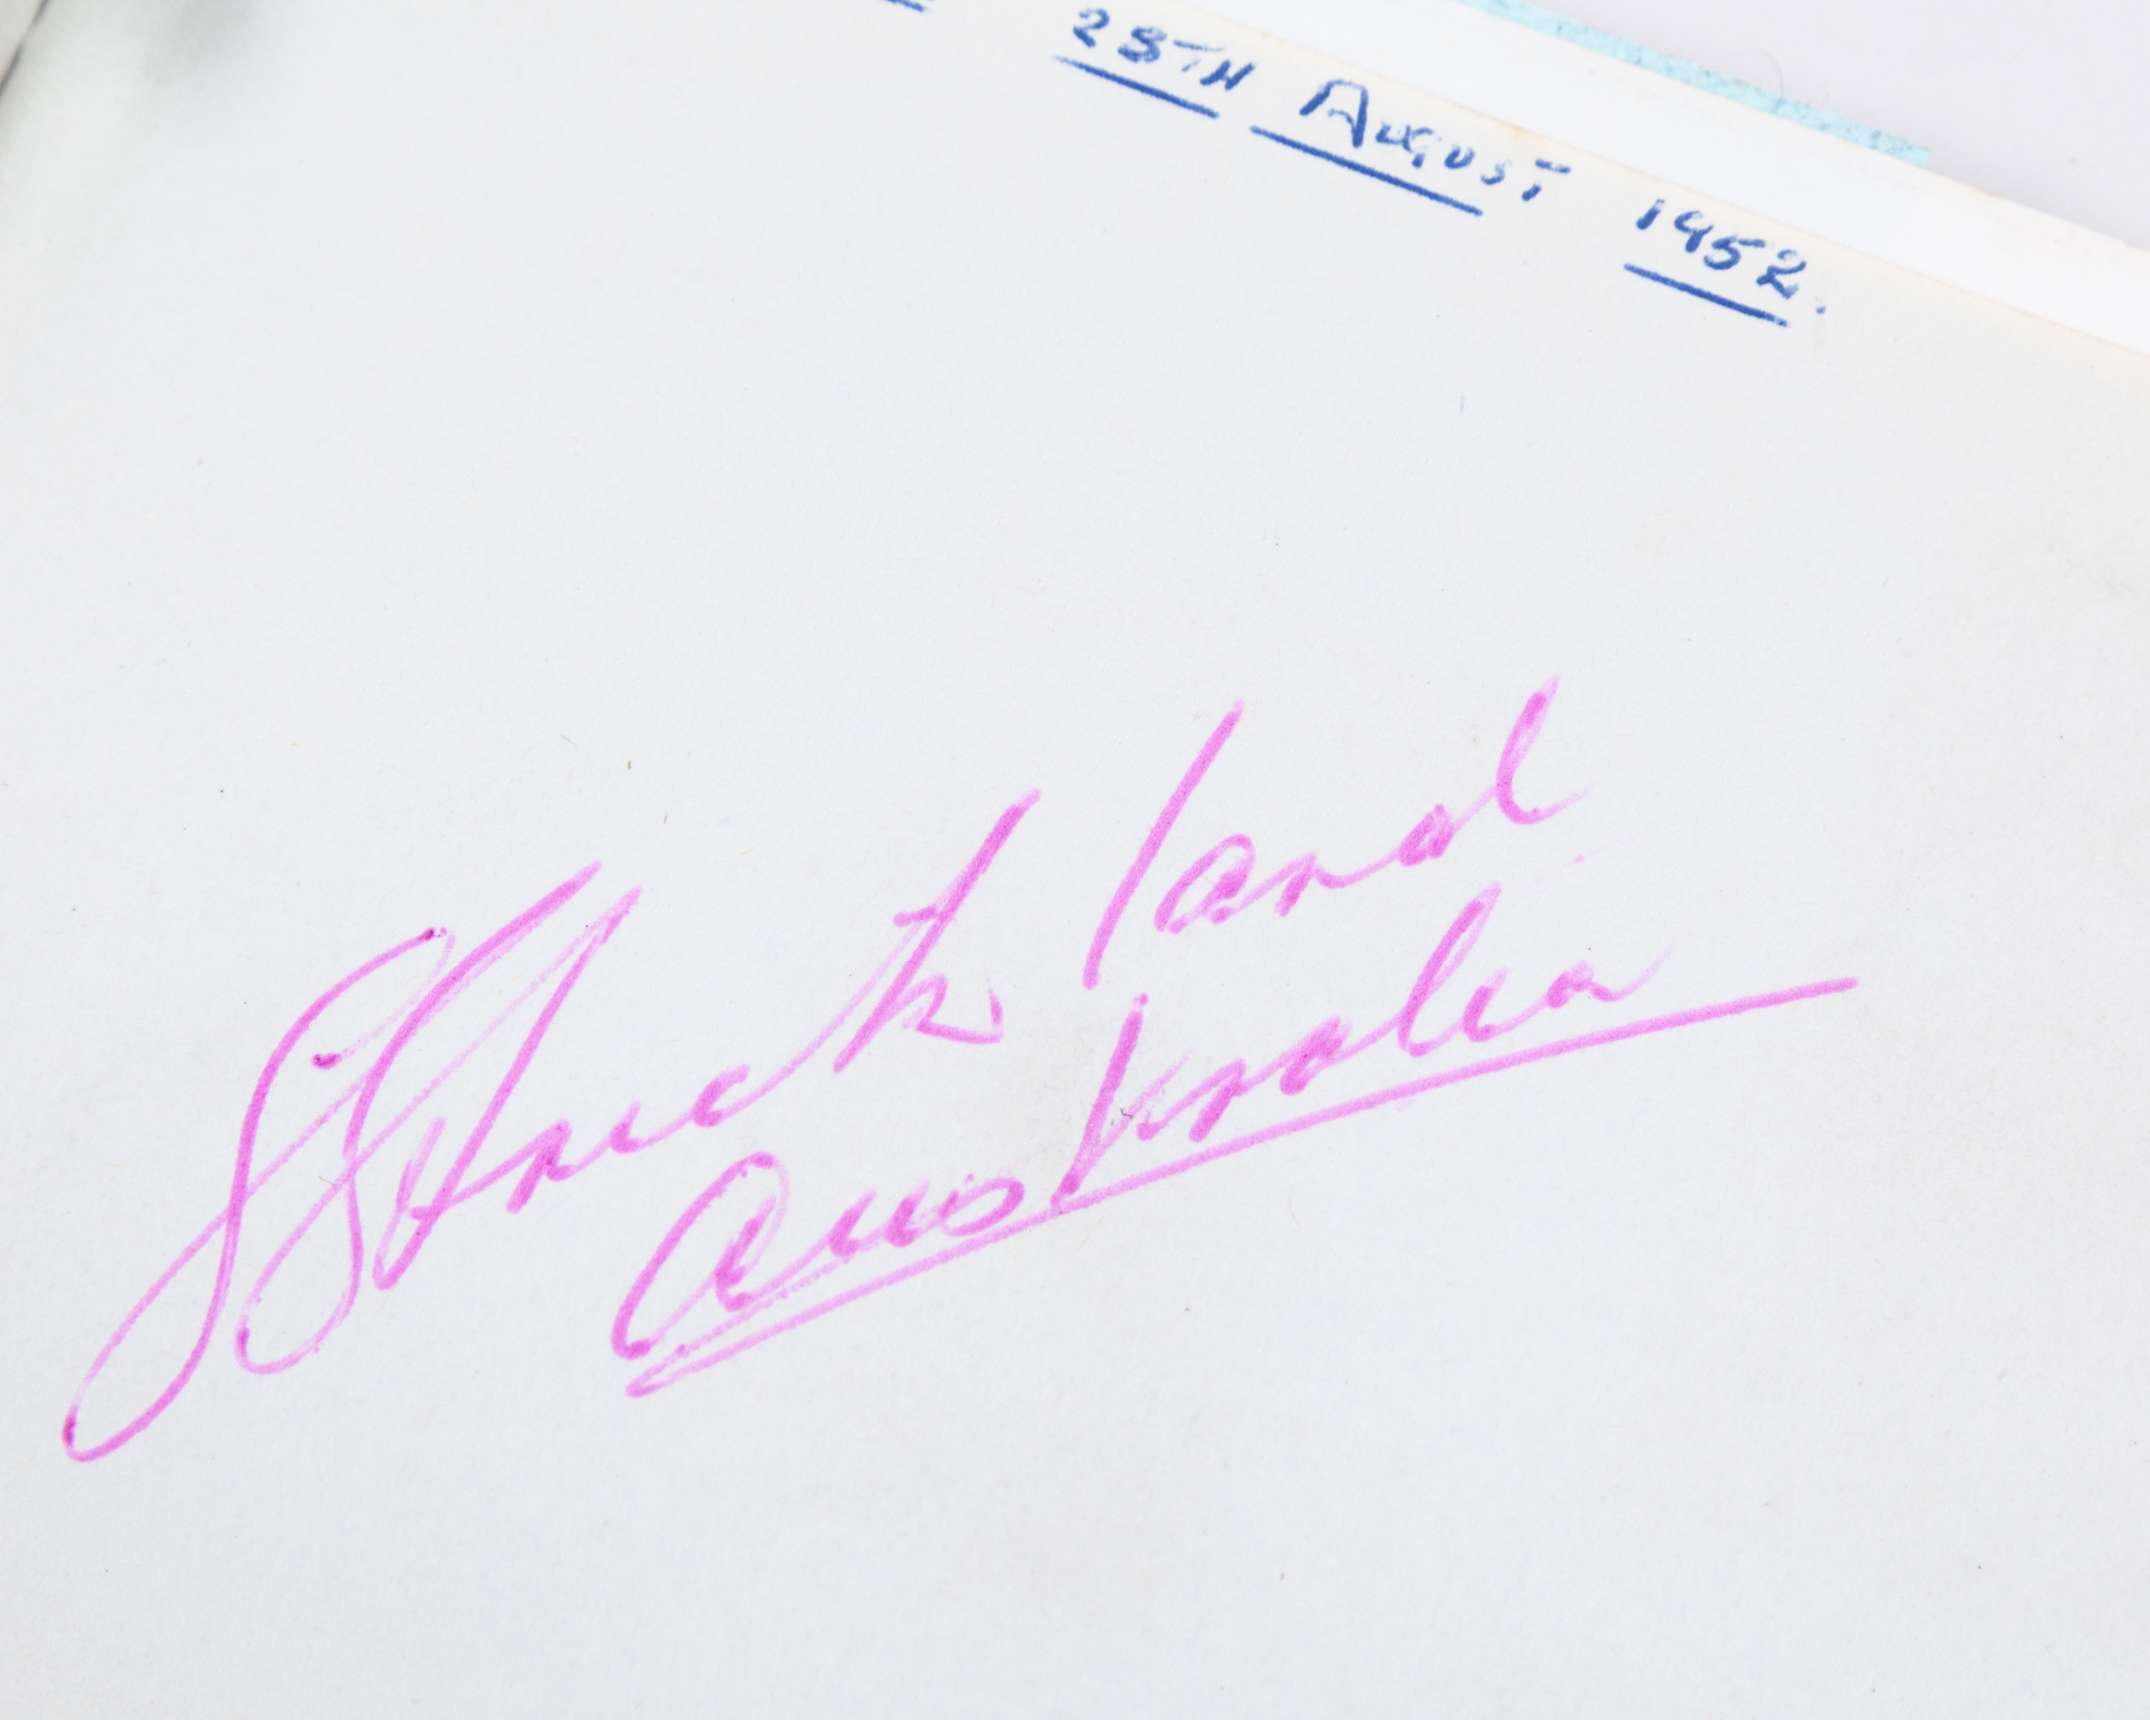 28TH AUGUST 1952.
S Strickland
Australia